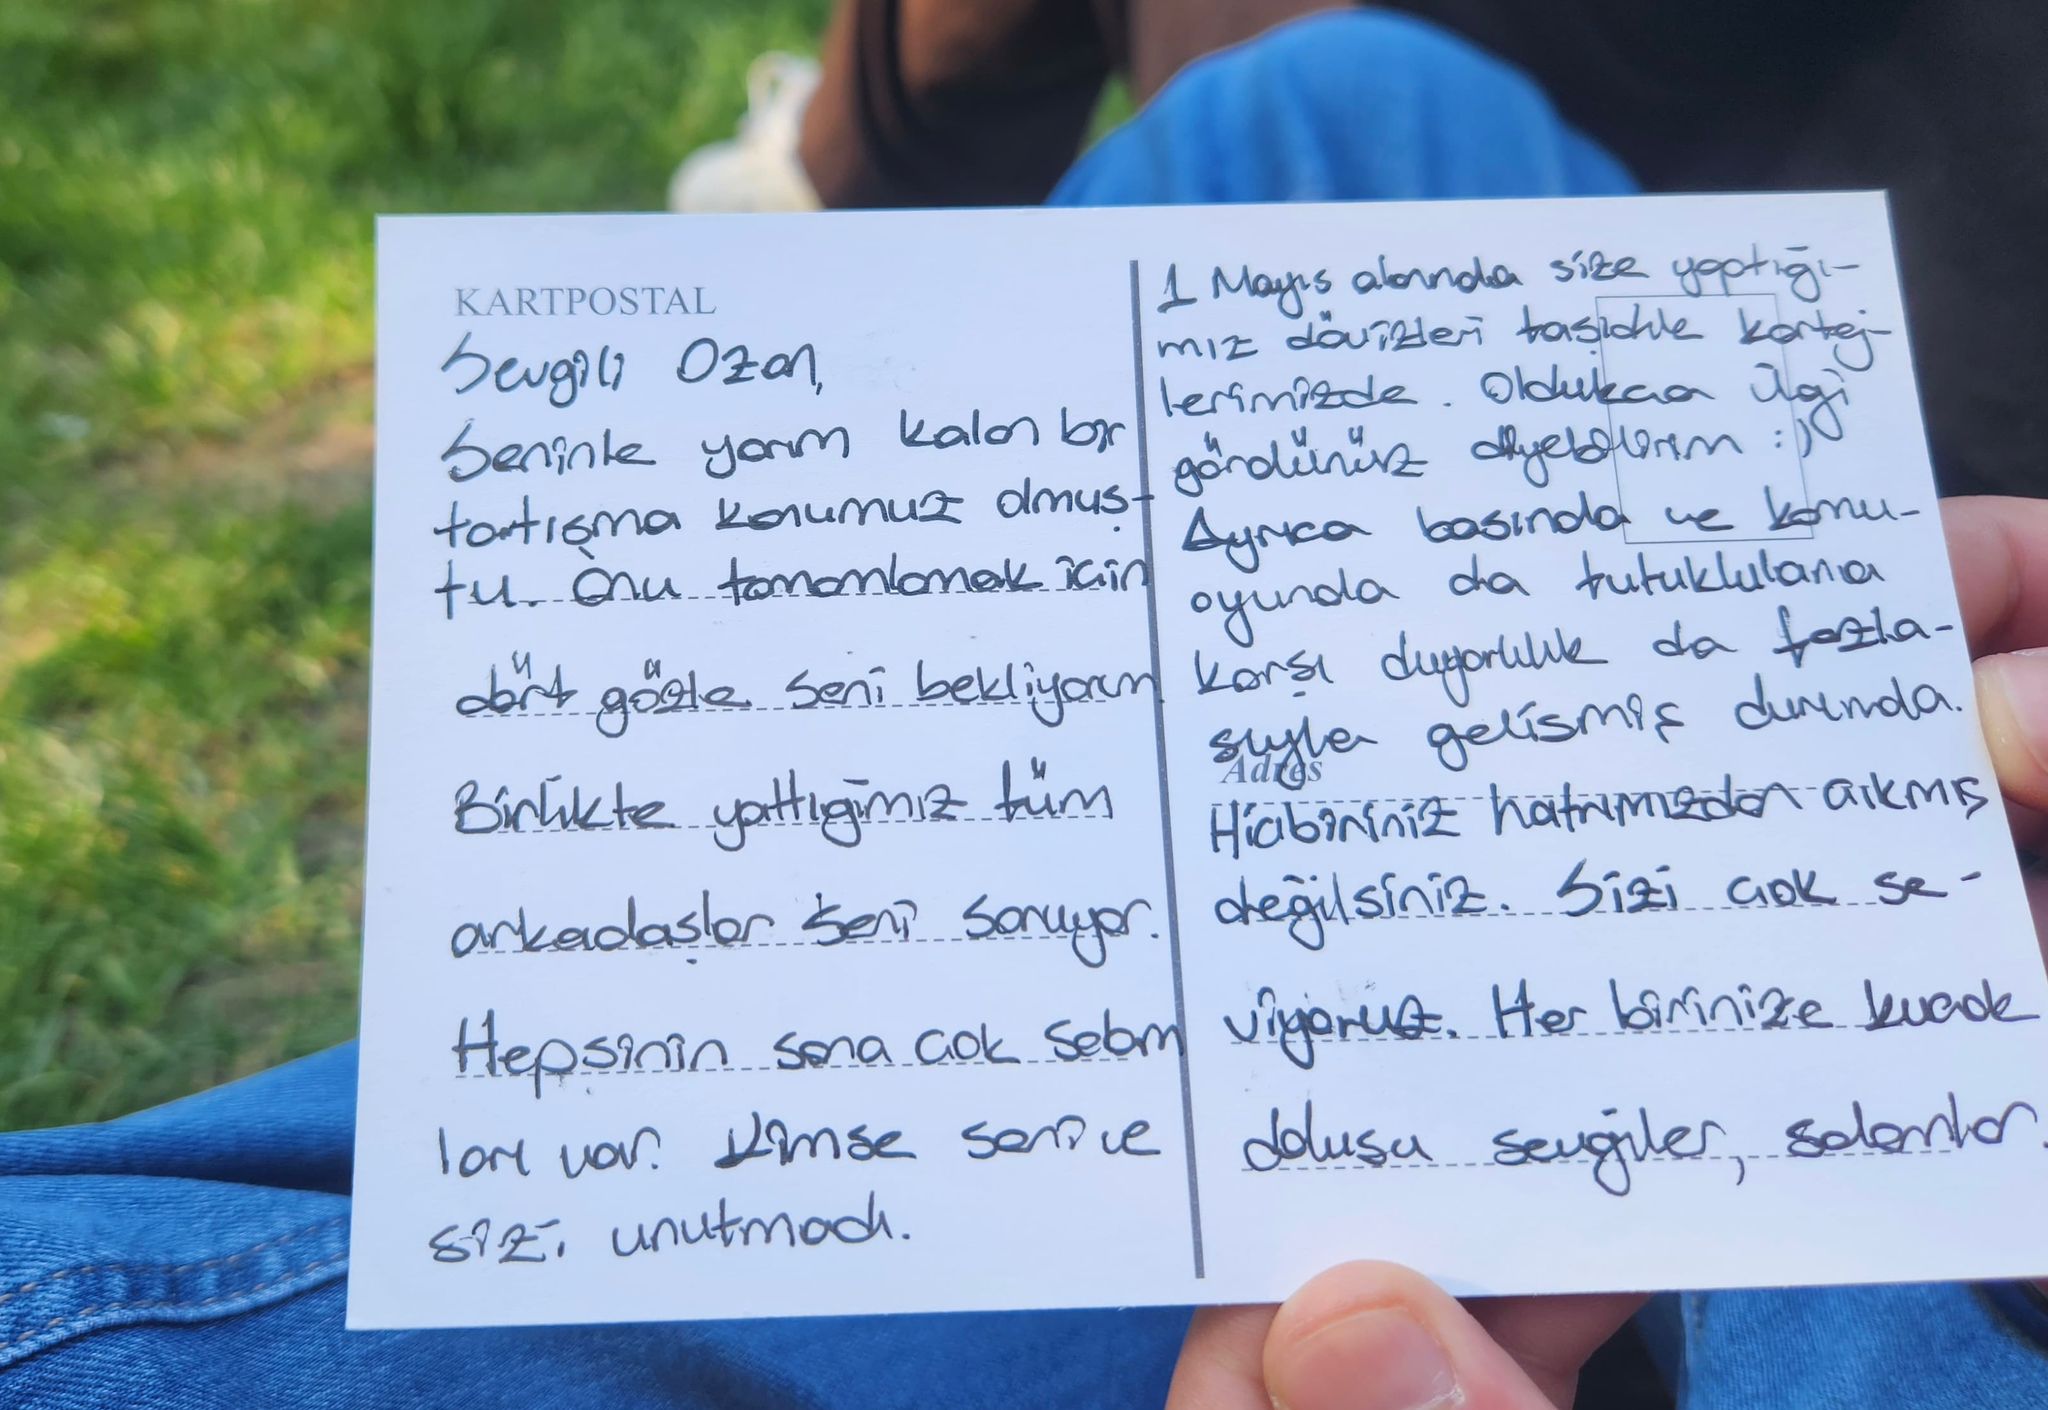 KARTPOSTAL
Sevgili Ozan,
Seninle yarım kalan bir
tartışma konumuz olmuş-
tu. Onu tamamlamak için
dört gözle seni bekliyorum
Birlikte yattığımız tüm
arkadaşlar seni soruyor.
Hepsinin sana çok selam
ları var. Kimse seni ve
sizi unutmadı.
1 Mayıs alanında size yaptığı-
mız dövizleri taşıdık kortej-
lerimizde. Oldukça ilgi
gördünüz diyebilirim :)
Ayrıca basında ve kamu-
oyunda da tutuklulara
karşı duyarlılık da fazla-
sıyla gelişmiş durumda.
Adres
Hiçbiriniz hatrımızdan çıkmış
değilsiniz. Sizi çok se-
viyoruz. Her birinize kucak
dolusu sevgiler, selamlar.